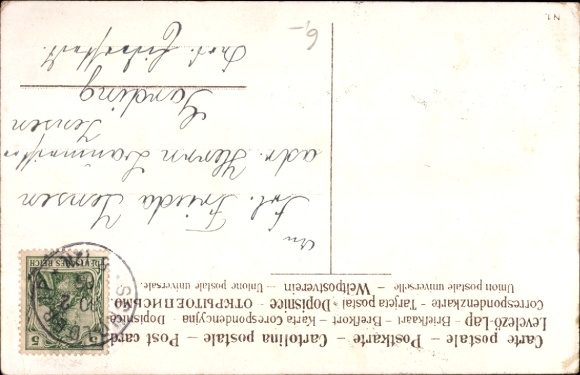 Carte postale – Postkarte – Cartolina postale – Post card
Levelező-Lap – Briefkaart – Brefkort – Karta Corespondencyjna – Dopisnice
Correspondenzkarte – Tarjeta postal – Dopisnice – ОТКРЫТОЕ ПИСЬМО
Union postale universelle – Weltpostverein – Unione postale universale
An
Frl. Frieda Jensen
adr. Herrn
Jensen
Garding
6,-
DEUTSCHES REICH
5 5
N1.